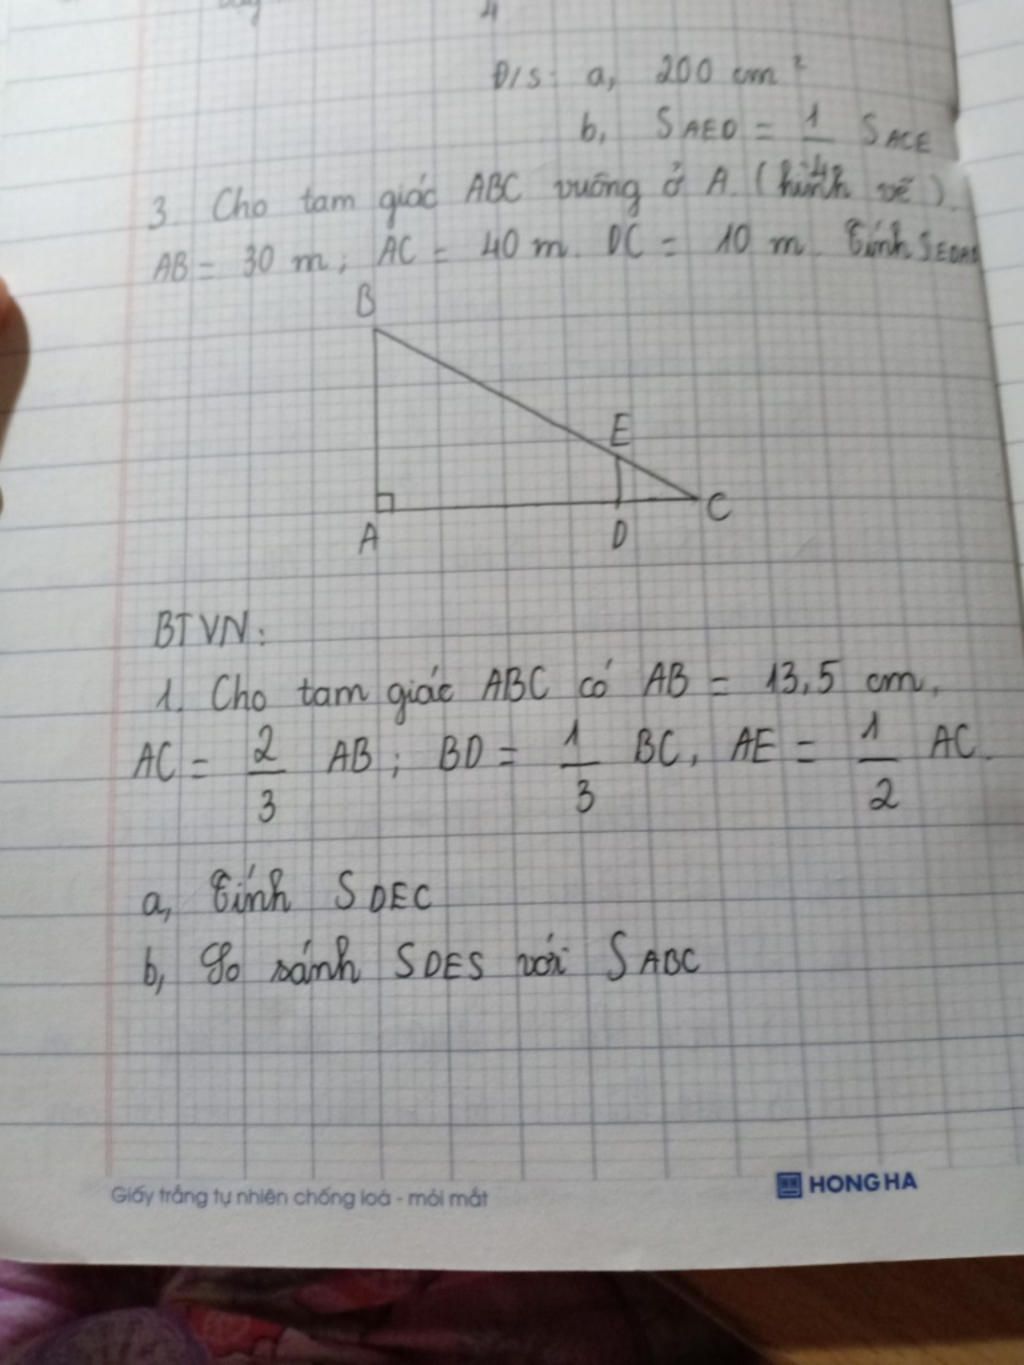 4
Đ/S: a, 200 cm²
b, SAED = 1/4 SACE
3. Cho tam giác ABC vuông ở A. (hình vẽ).
AB = 30 m; AC = 40 m. DC = 10 m. Tính
B
E
A
D
C
BTVN:
1. Cho tam giác ABC có AB = 13,5 cm,
AC = 2/3 AB; BD = 1/3 BC, AE = 1/2 AC.
a, Tính SDEC
b, So sánh SDES với SABC
Giấy trắng tự nhiên chống loá - mỏi mắt
HONG HA